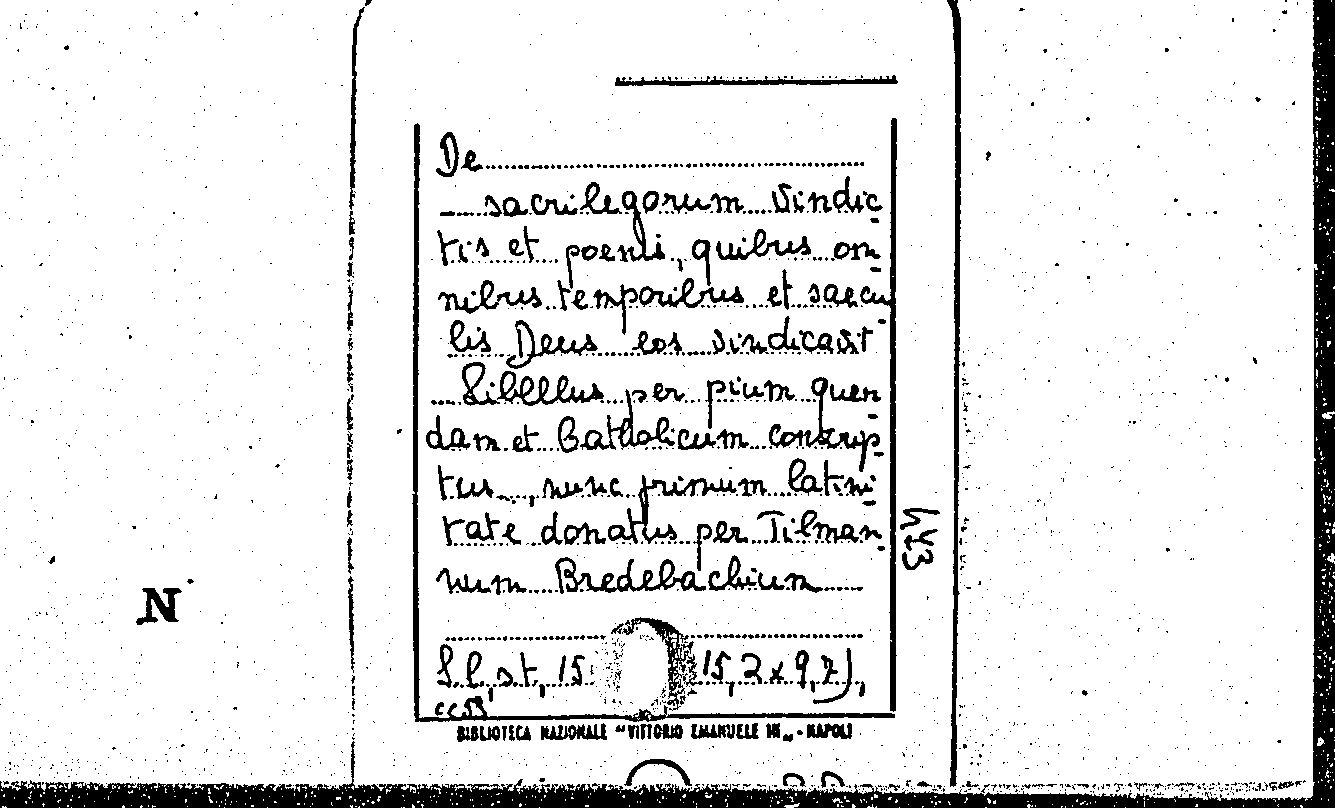 De
sacrilegorum vindic-
tis et poenis, quibus om-
nibus temporibus et saecu-
lis Deus eos vindicavit
Libelllus per pium quen-
dam et Catholicum conscrip-
tus, nunc primum latini-
tate donatus per Tilman-
num Bredebachium
S.l., st, 15 15,2x9,7),
cc 53
BIBLIOTECA NAZIONALE "VITTORIO EMANUELE III„ - NAPOLI
443
N